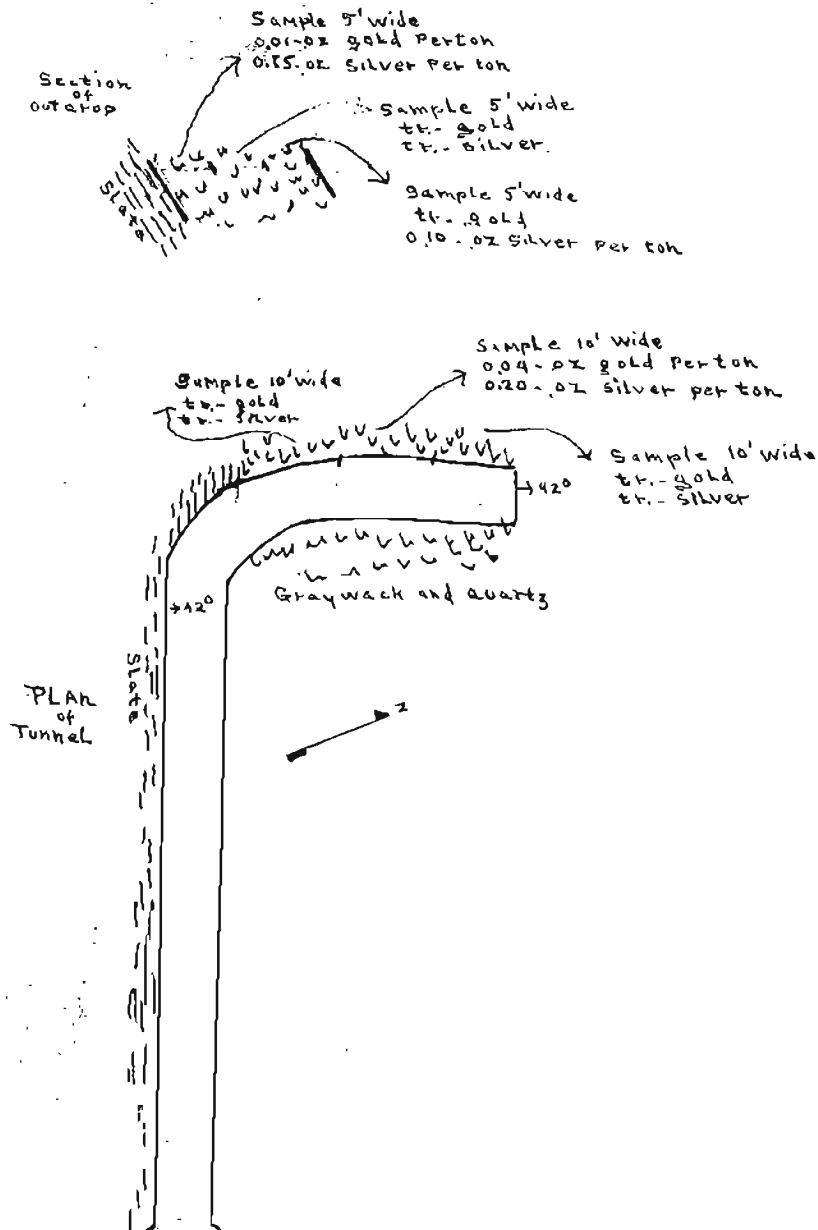 Sample 5' wide
0.01-oz gold Per ton
oz silver Per ton
Section
of
outcrop
Sample 5' wide
tr.- gold
tr.- Silver.
Slate
Sample 5' wide
tr- gold
0.10 - oz Silver per ton
Sample 10' wide
0.04 - oz gold Per ton
0.20 - oz Silver per ton
Sample 10' wide
tr.- gold
tr.- Silver
Sample 10' wide
tr.- gold
tr.- Silver
42°
Graywack and Quartz
42°
Slate
PLAn
of
Tunnel
N